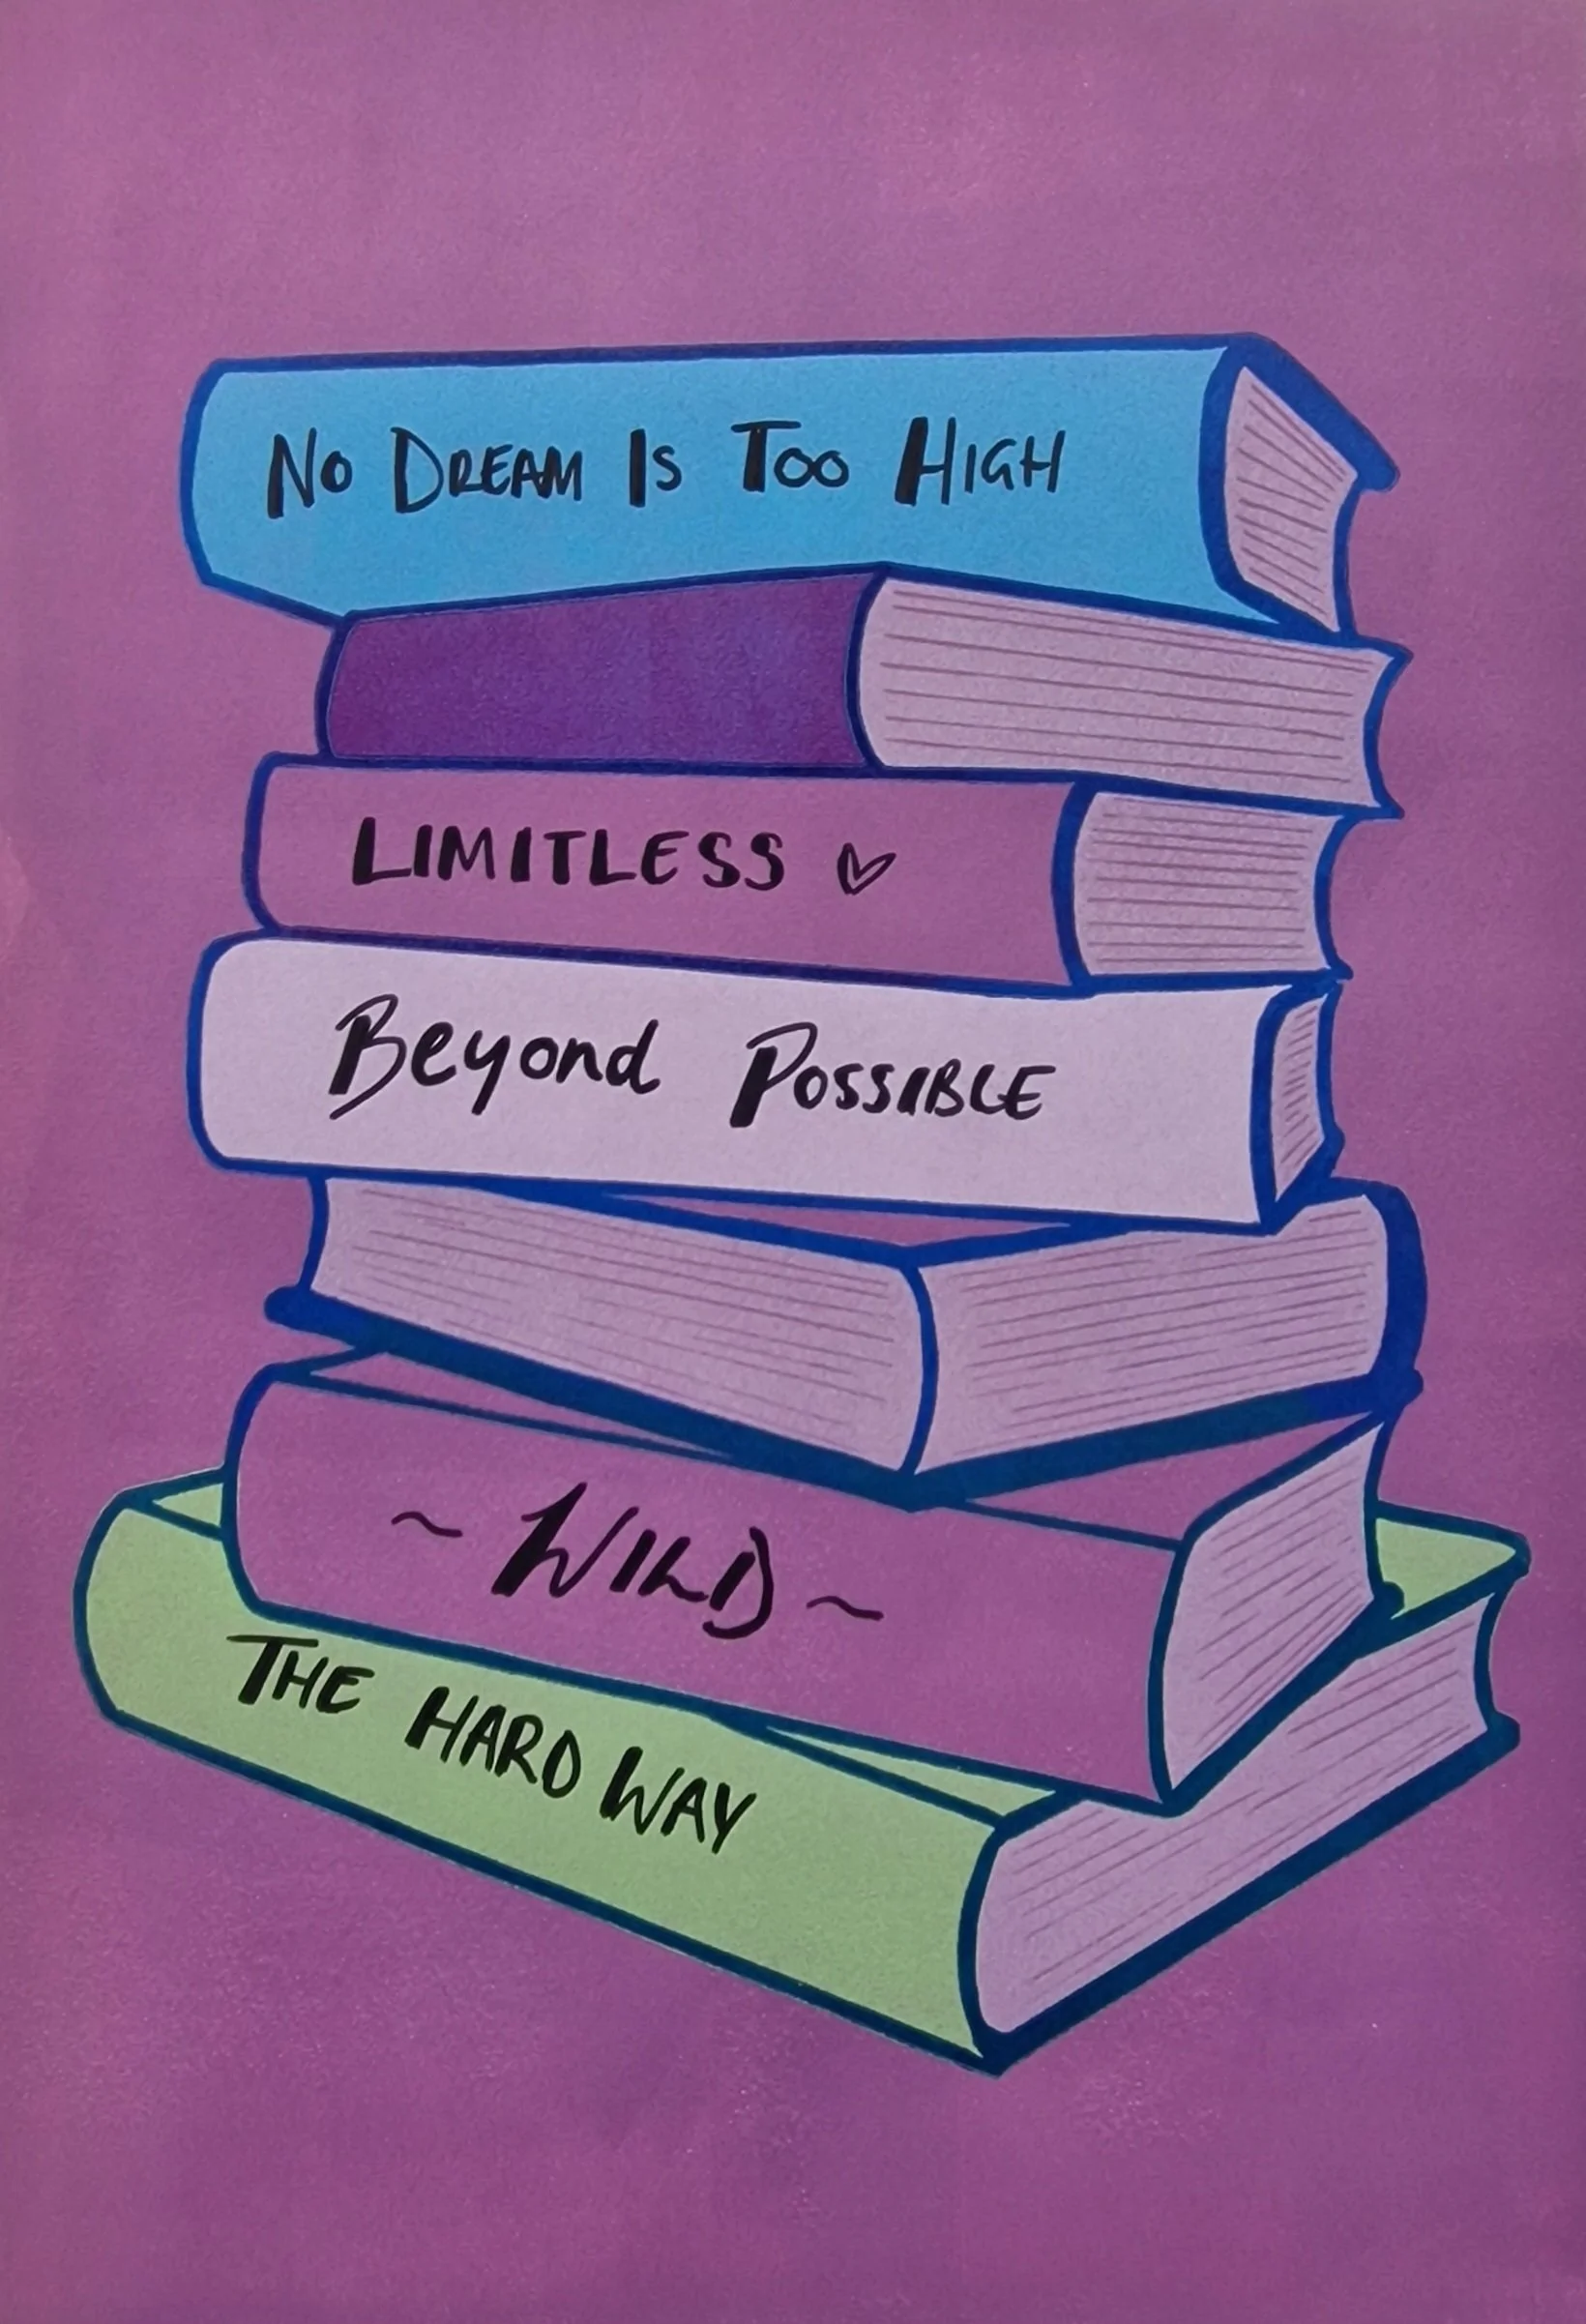 No DREAM Is Too HIGH
LIMITLESS ♡
Beyond POSSIBLE
~ WILD ~
THE HARD WAY